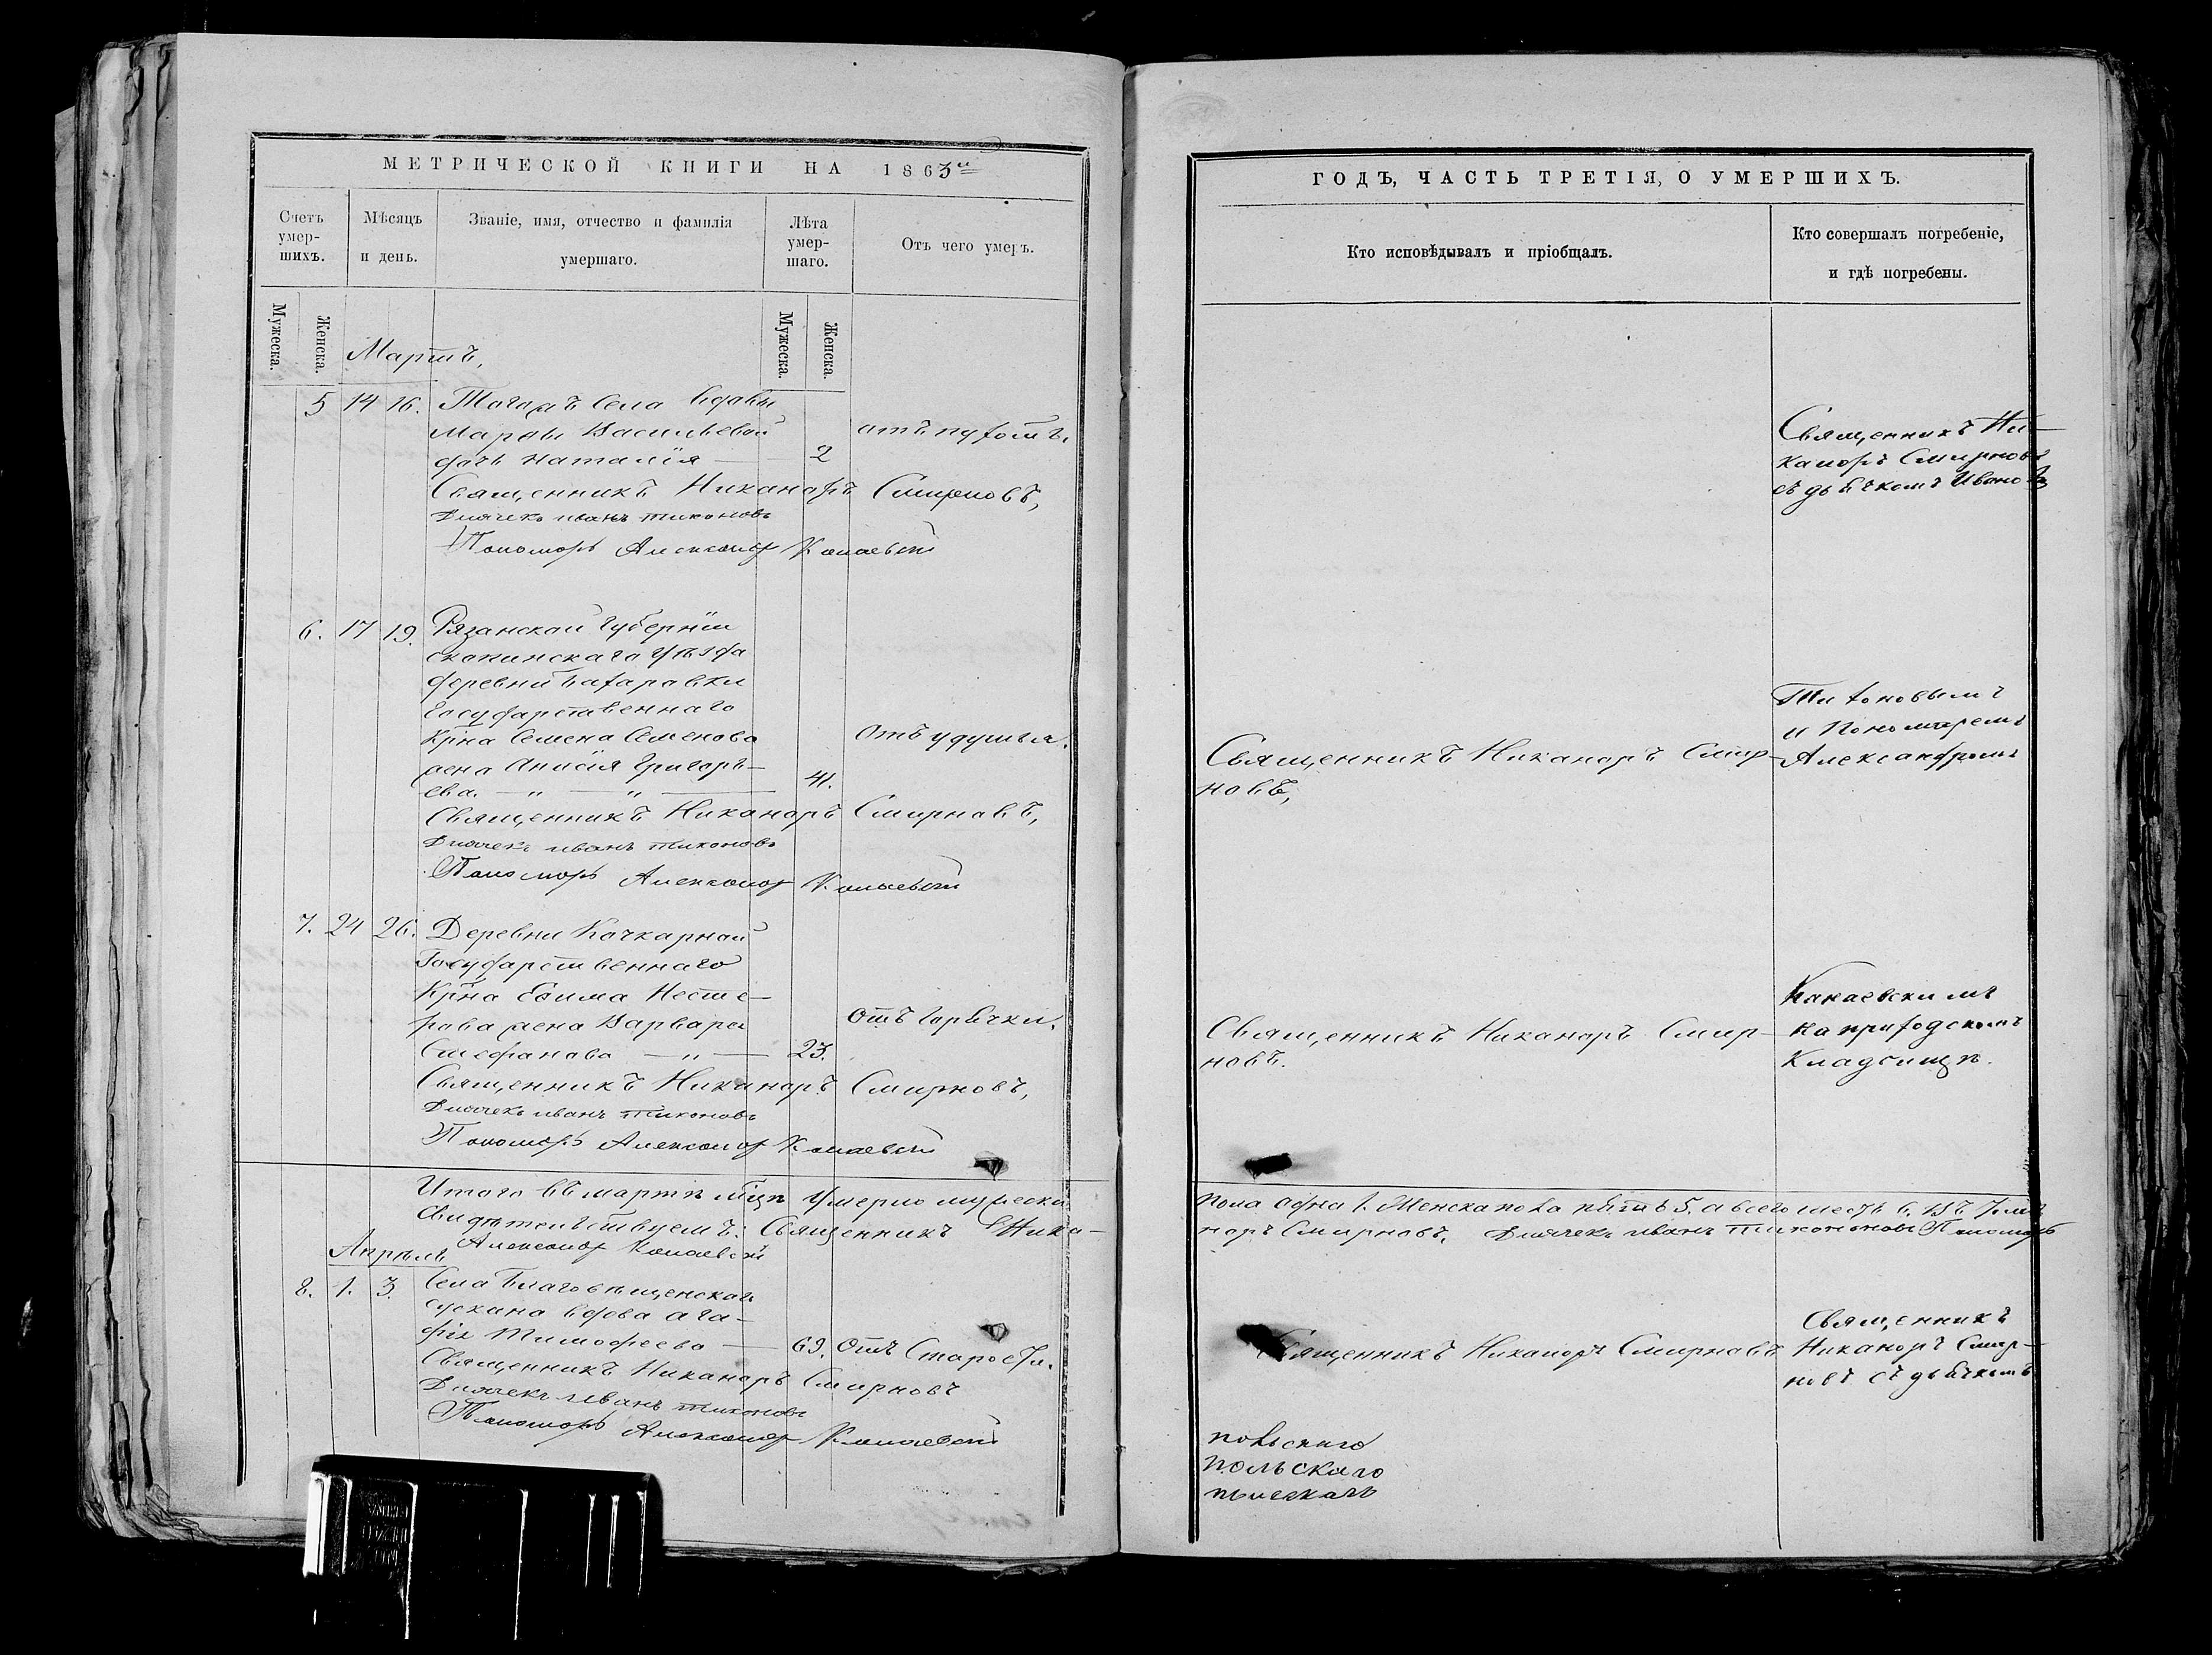 МЕТРИЧЕСКОЙ КНИГИ НА 1863й
Счетъ умер-шихъ.
Мѣсяцъ и день.
Званіе, имя, отчество и фамилія умершаго.
Лѣта умер-шаго.
Отъ чего умеръ.
Мужеска.
Женска.
Мужеска.
Женска.
Мартъ,
5 14 16. Тогожъ Села вдовы
Марѳы Васильевой
дочь Наталія 2
Священникъ Никаноръ Смирновъ,
Дьячекъ иванъ тихоновъ
Пономарь Александр Канаевскій
6. 17 19. Рязанской Губерніи
скопинскаго Уѣзда
деревни
Государственнаго
Крн̃а Семена Семенова отъ удушья.
жена Анисія Григорь-
ева. 41.
Священникъ Никаноръ Смирновъ,
Дьячекъ иванъ тихоновъ
Пономарь Александр Канаевскій
7. 24 26. Деревни Кочкарной
Государственнаго
Крн̃а Ефима Несте-
рова жена Варвара Отъ горячки.
Стефанова 23.
Священникъ Никаноръ Смирновъ,
Дьячекъ иванъ тихоновъ
Пономарь Александр Канаевскій
Итого въ мартѣ мц̃ѣ Умерло мужеска
Свидѣтельствуемъ: Священникъ Ника-
Александр Канаевскій
Апрѣль
8. 1. 3. Села Благовѣщенскаго
вдова Ага-
фія Тимофеева 69. Отъ Старости.
Священникъ Никаноръ Смирновъ
Дьячекъ иванъ тихоновъ
Пономарь Александр Канаевскій
ГОДЪ, ЧАСТЬ ТРЕТІЯ, О УМЕРШИХЪ.
Кто исповѣдывалъ и пріобщалъ.
Кто совершалъ погребеніе,
и гдѣ погребены.
Священникъ Ни-
каноръ Смирновъ
съ дьячкомъ Ивано
Тихоновымъ
и Пономаремъ
Священникъ Никаноръ Смир- Александромъ
новъ,
Канаевскимъ
Священникъ Никаноръ Смир- на приходскомъ
новъ. Кладбищѣ.
пола одна 1. Женска пола пять 5. а всего шесть 6.
норъ Смирновъ, Дьячекъ иванъ тихоновъ Пономарь
Священникъ
Священникъ Никаноръ Смирновъ Никаноръ Смир-
новъ съ дьячкомъ
польскаго
польскаго